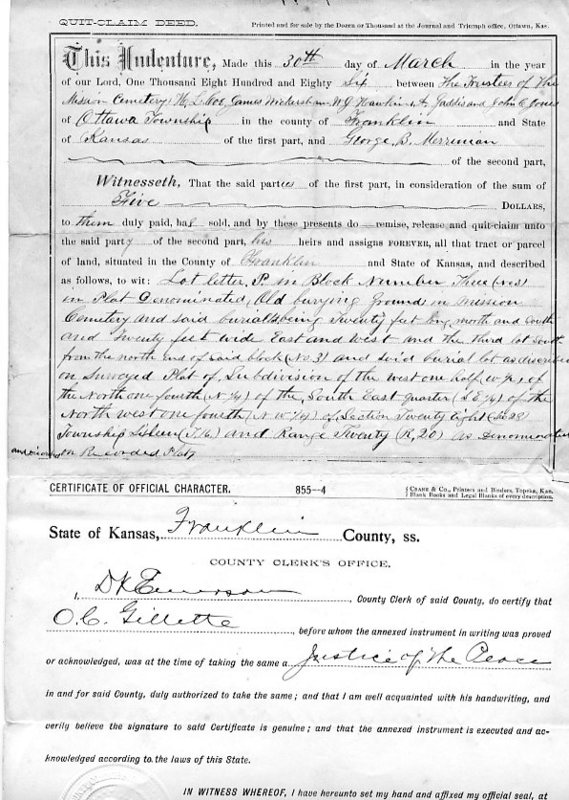 QUIT-CLAIM DEED. Printed and for sale by the Dozen or Thousand at the Journal and Triumph office, Ottawa, Kas.
This Indenture, Made this 30th day of March in the year
of our Lord, One Thousand Eight Hundred and Eighty Six between The Trustees of The
Mission Cemetery H. L. James W. J. Hawkins A. Gaddis and John C. Jones
of Ottawa Township in the county of Franklin and State
of Kansas of the first part, and George B. Merriman
of the second part,
Witnesseth, That the said parties of the first part, in consideration of the sum of
Five DOLLARS,
to them duly paid, has sold, and by these presents do remise, release and quit-claim unto
the said party of the second part, his heirs and assigns FOREVER, all that tract or parcel
of land, situated in the County of Franklin and State of Kansas, and described
as follows, to wit: Lot letter P in Block Number Three (No 3)
in Plat Denominated, Old burying Grounds in Mission
Cemetery and said burial being Twenty feet long north and South
and Twenty feet wide East and west and the third lot South
from the north end of said block (No 3) and said burial lot as
on Surveyed Plat of Subdivision of the west one half (W ½) of
the North one fourth (N ¼) of the South East quarter (S E ¼) of the
North west one fourth (N W ¼) of Section Twenty eight (28)
Township Sixteen (T 16) and Range Twenty (R, 20) as
on Recorded Plat
CERTIFICATE OF OFFICIAL CHARACTER. 855—4 CRANE & CO., Printers and Binders, Topeka, Kan.
Blank Books and Legal Blanks of every description.
State of Kansas, Franklin County, ss.
COUNTY CLERK'S OFFICE.
I, D K Emerson, County Clerk of said County, do certify that
O. C. Gillette, before whom the annexed instrument in writing was proved
or acknowledged, was at the time of taking the same a Justice of the Peace
in and for said County, duly authorized to take the same; and that I am well acquainted with his handwriting, and
verily believe the signature to said Certificate is genuine; and that the annexed instrument is executed and ac-
knowledged according to the laws of this State.
IN WITNESS WHEREOF, I have hereunto set my hand and affixed my official seal, at